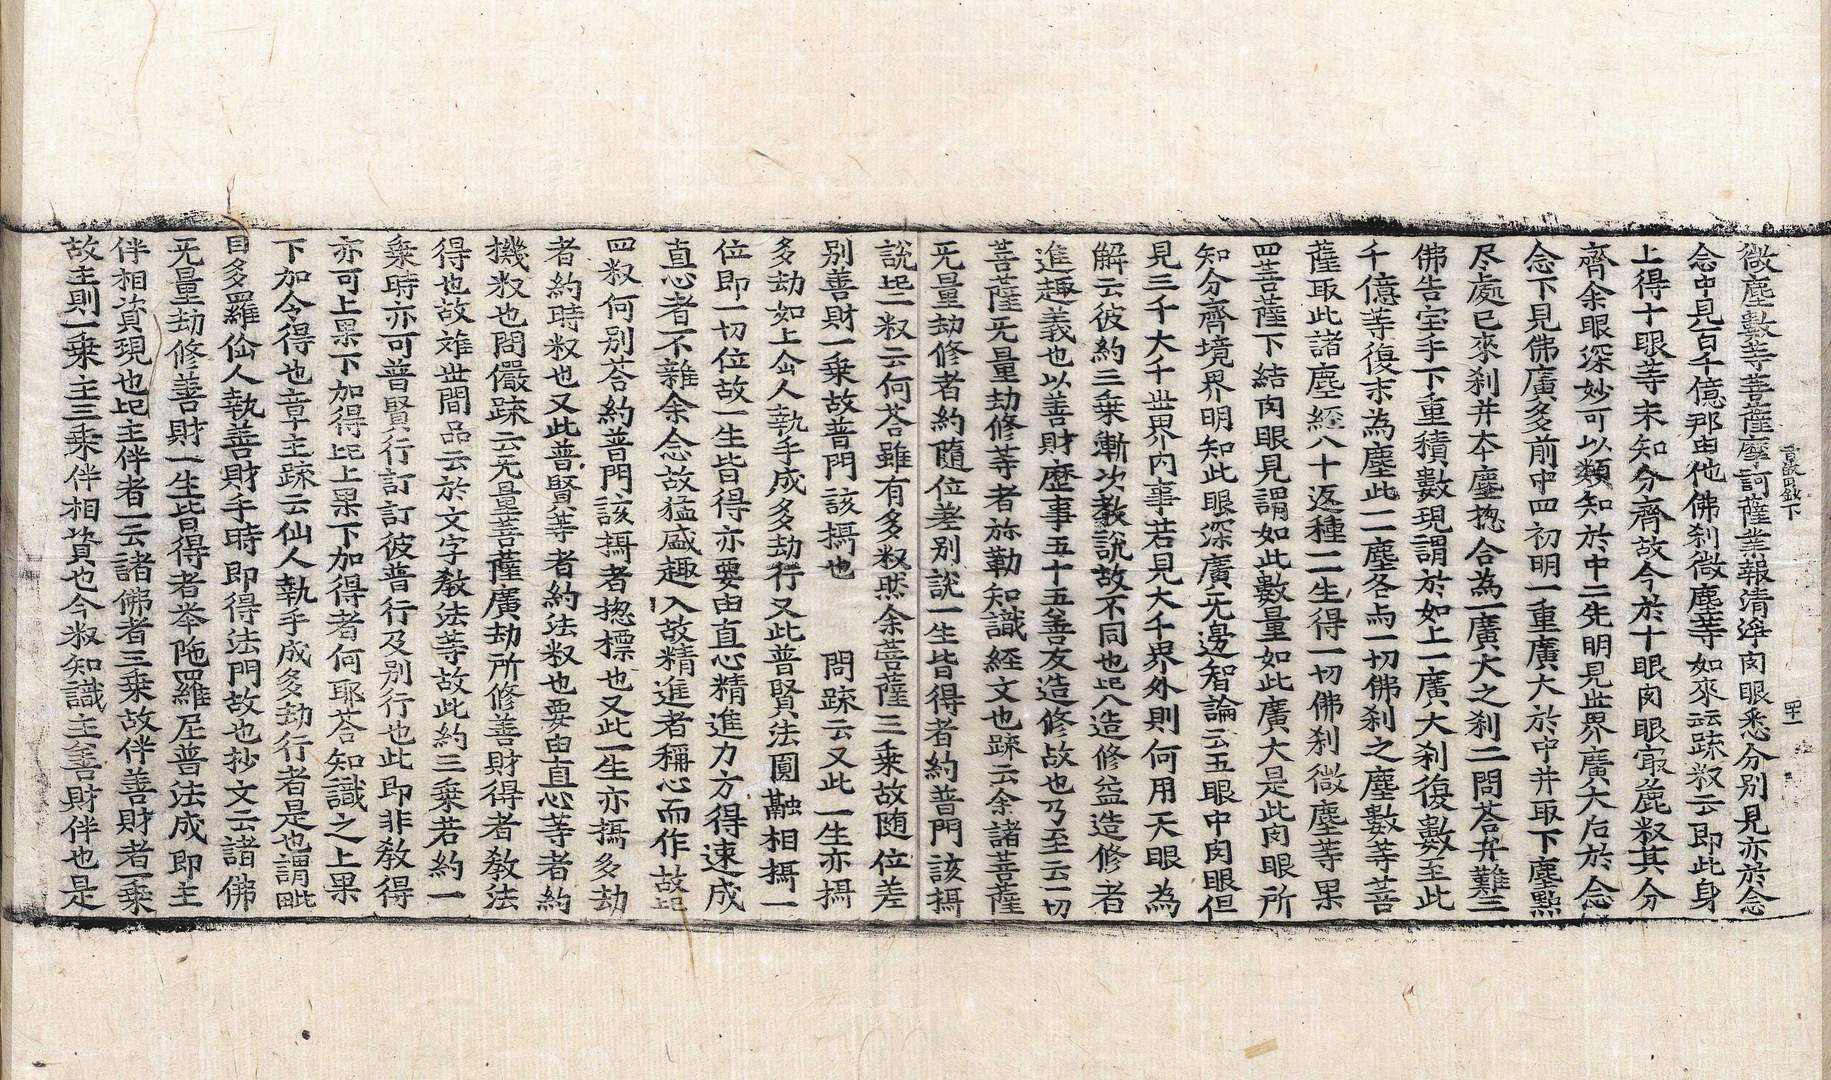 微塵數等菩薩摩訶薩業報清淨肉眼悉分別見亦於念
念中見百千億那由他佛刹微塵等如來云䟽叙云即此身
上得十眼等未知分齊故今於十眼肉眼寂麁叙其分
齊余眼深妙可以類知於中二先明見世界廣大后於念
念下見佛廣多前中四初明一重廣大於中并取下塵㸃
尽處已來刹并夲塵揔合為一廣大之刹二問荅弁難三
佛告宝手下重積數現謂於如上一廣大刹復數至此
千億等復末為塵此二塵各与一切佛刹之塵數等菩
薩取此諸塵経八十返種二生得一切佛刹微塵等果
四菩薩下結肉眼見謂如此數量如此廣大是此肉眼所
知分齊境界明知此眼深廣无邊智論云五眼中肉眼但
見三千大千世界内事若見大千界外則何用天眼為
解云彼約三乗漸次教説故不同也㠯八造修益造修者
進趣義也以善財歴事五十五善友造修故也乃至云一切
菩薩无量劫修等者弥勒知識経文也䟽云余諸菩薩
无量劫修者約随位差别説一生皆得者約普門該攝
說此二叙云何荅雖有多叙然余菩薩三乗故随位差
别善財一乗故普門該攝也 問䟽云又此一生亦攝
多劫如上仚人執手成多劫行又此普賢法圎融相攝一
位即一切位故一生皆得亦要由直心精進力方得速成
直心者不雜余念故猛盛趣入故精進者稱心而作故㠯
四叙何别荅約普門該攝者揔標也又此一生亦攝多劫
者約時叙也又此普賢等者約法叙也要由直心等者約
機叙也問儼䟽云无量菩薩廣劫所修善財得者教法
得也故雖世間品云於文字教法等故此約三乗若約一
乗時亦可普賢行訂訂彼普行及别行也此即非教得
亦可上果下加得此上果下加得者何耶荅知識之上果
下加令得也章主䟽云仙人執手成多劫行者是也謂毗
目多羅仚人執善財手時即得法門故也抄文云諸佛
无量劫修善財一生皆得者举陁羅尼普法成即主
伴相資現也㠯主伴者一云諸佛者三乗故伴善財者一乗
故主則一乗主三乗伴相資也今叙知識主善財伴也是